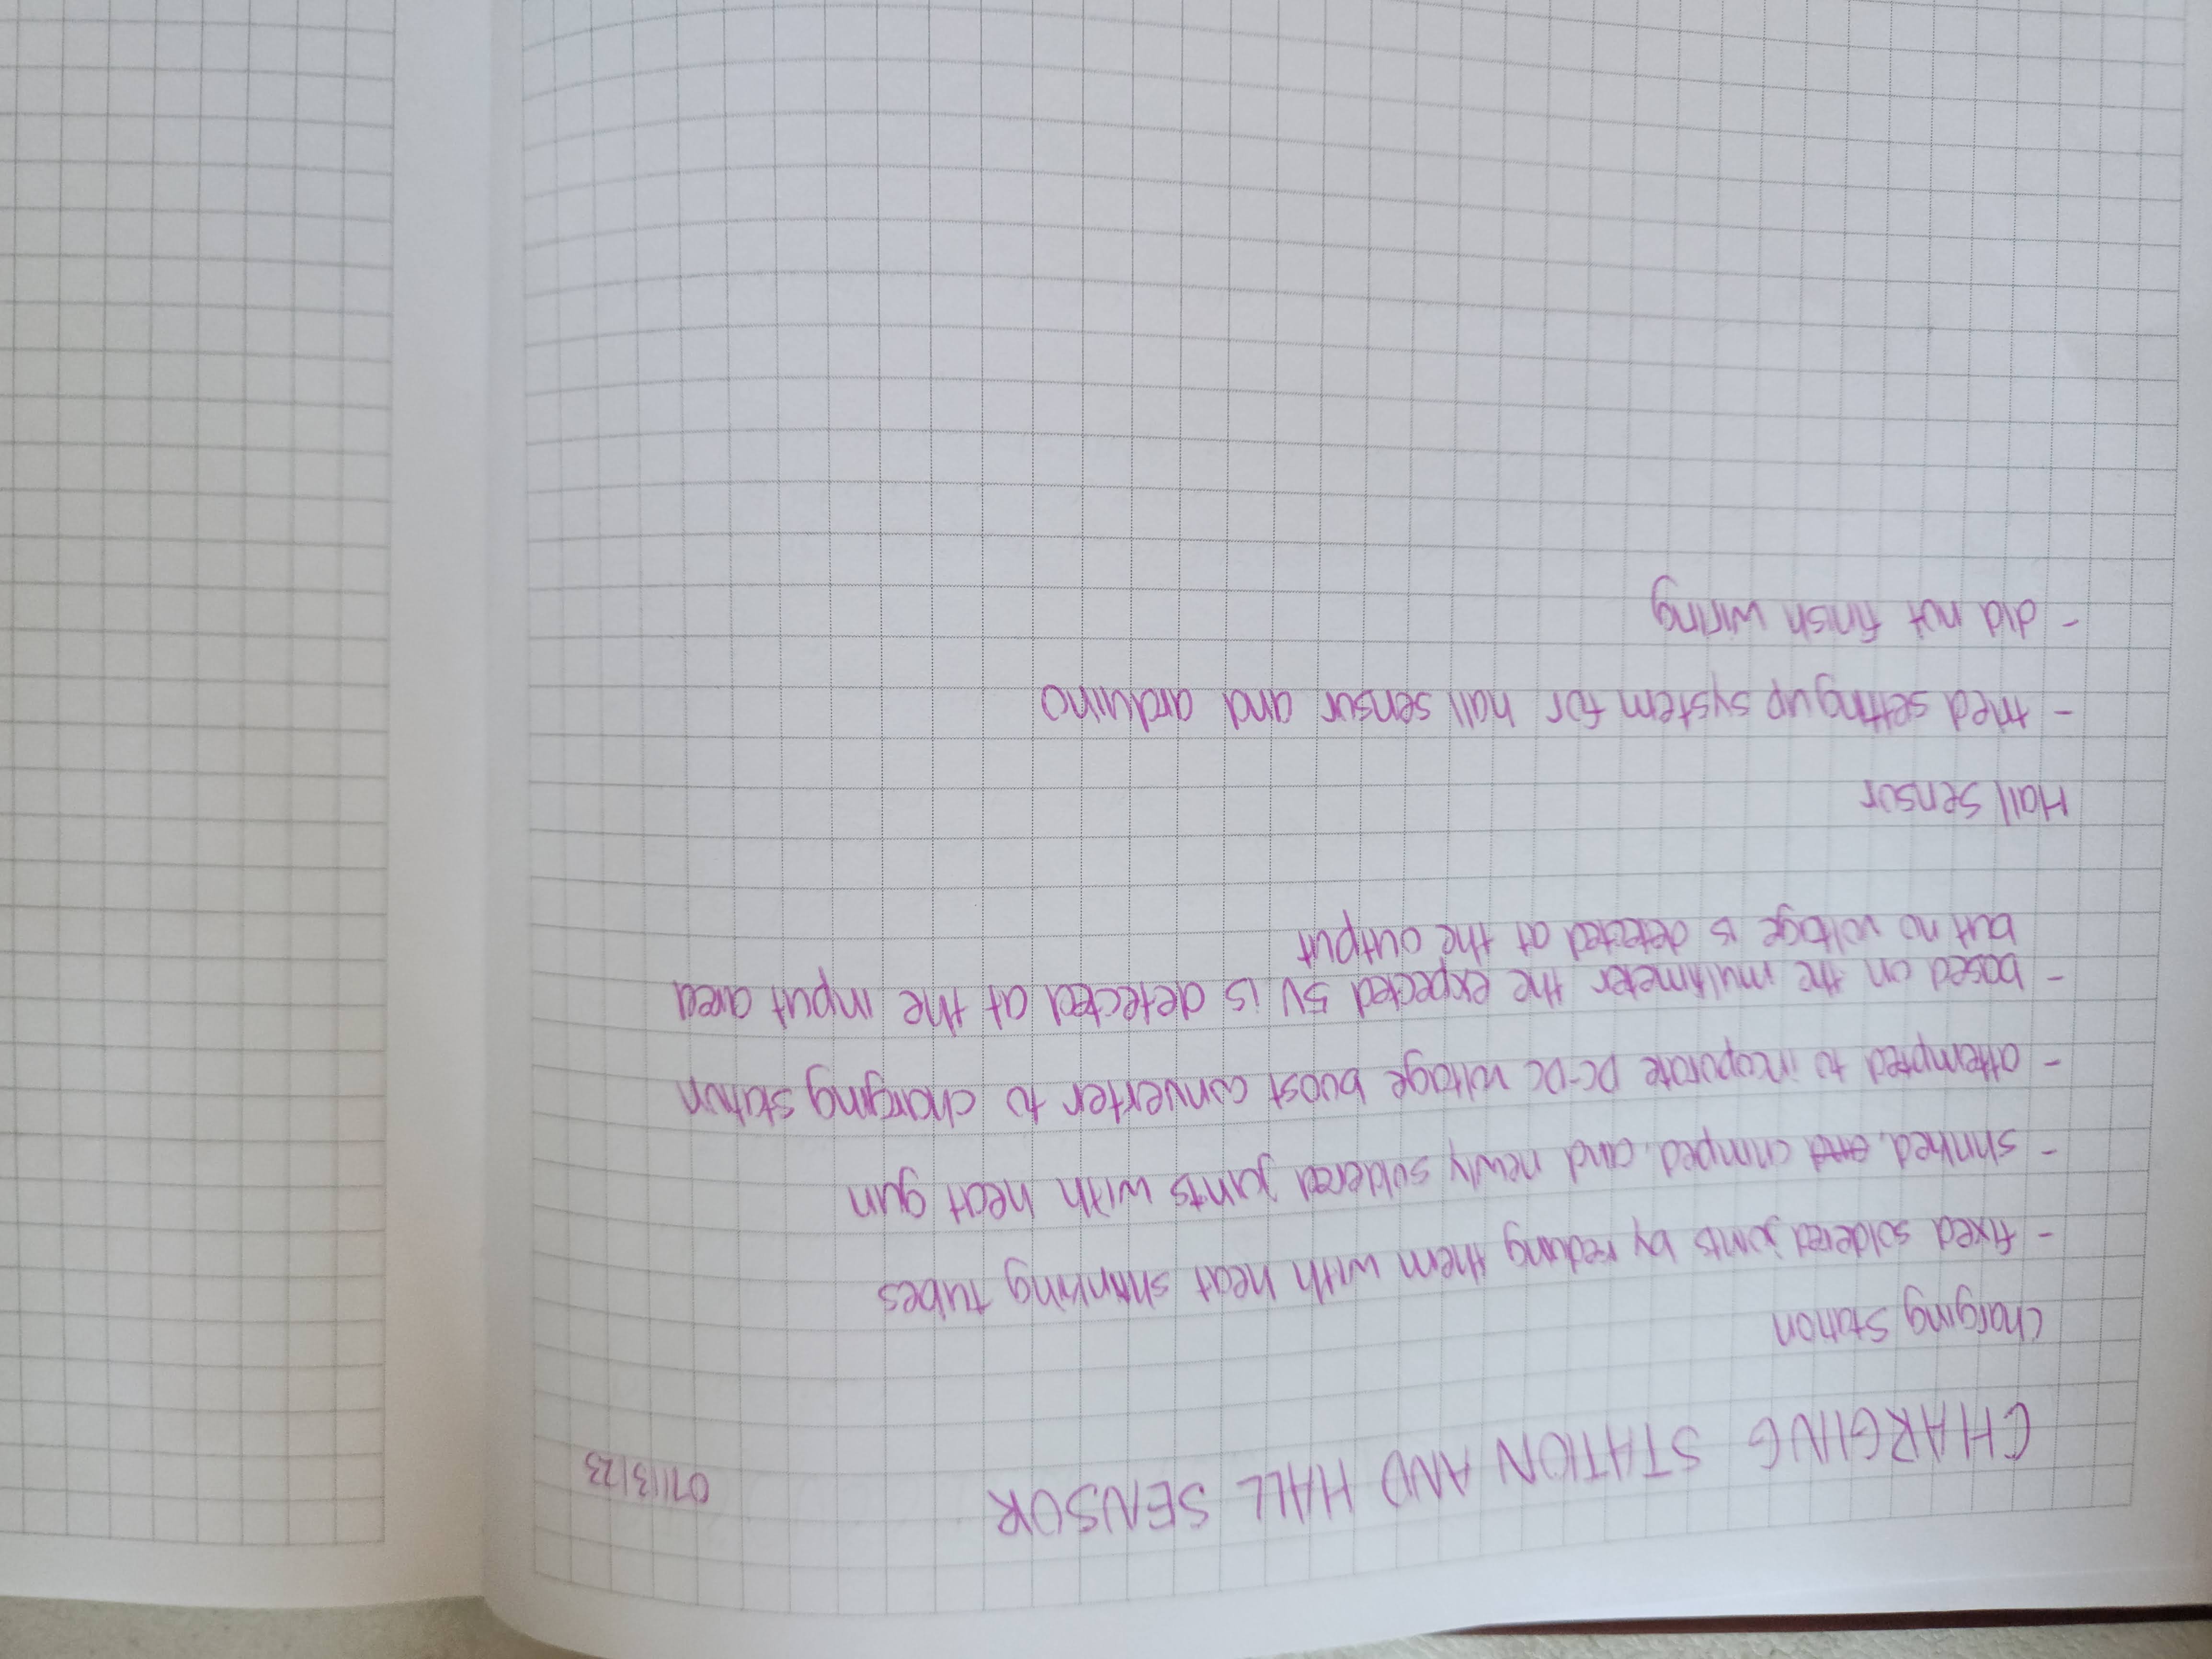 CHARGING STATION AND HALL SENSOR
07/13/23
Charging Station
- fixed soldered joints by redoing them with heat shrinking tubes
- shrinked, and crimped, and newly soldered joints with heat gun
- attempted to incoporate DC-DC voltage boost converter to charging station
- based on the multimeter the expected 5V is detected at the input area
but no voltage is detected at the output
Hall Sensor
- tried setting up system for hall sensor and arduino
- did not finish wiring